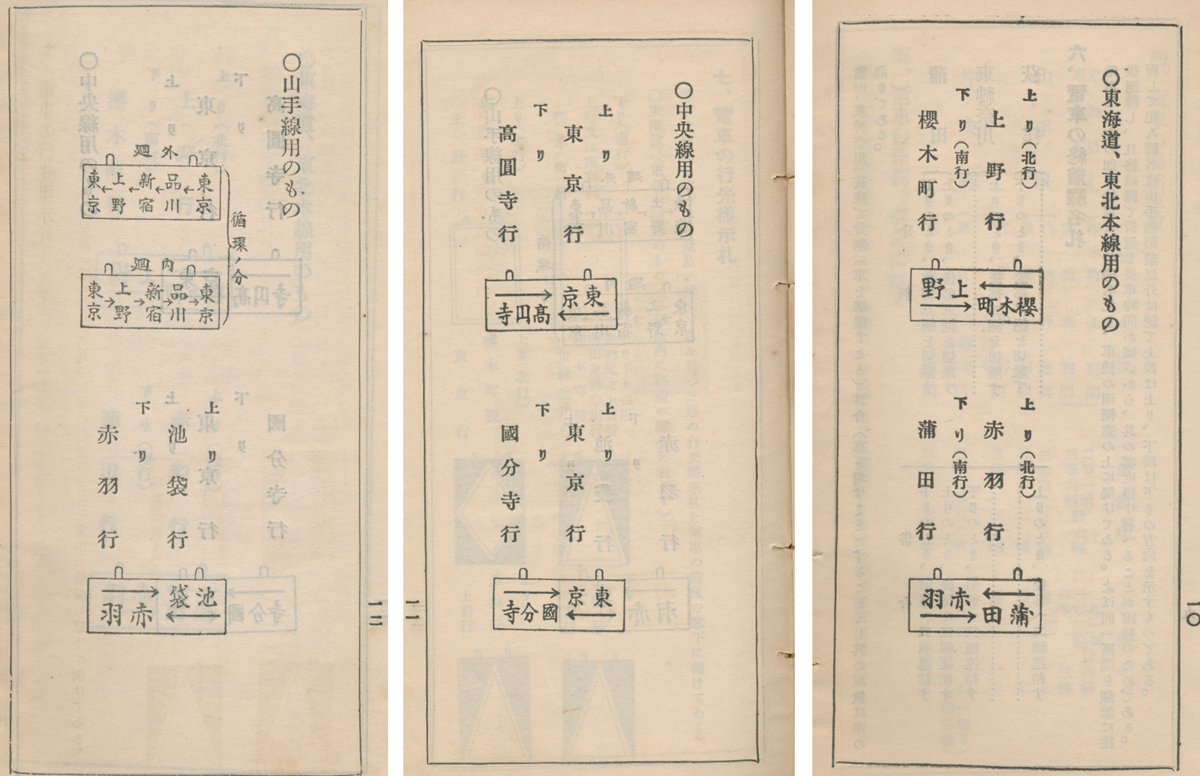 〇東海道、東北本線用のもの
上り(北行)
上野行
下り(南行)
櫻木町行
野上
町木櫻
上り(北行)
赤羽行
下り(南行)
蒲田行
羽赤
田蒲
一〇
〇中央線用のもの
上り
東京行
下り
高圓寺行
京東
寺円高
上り
東京行
下り
國分寺行
京東
寺分國
一一
〇山手線用のもの
循環ノ分
廻外
東京←上野←新宿←品川←東京
廻內
東京→上野→新宿→品川→東京
上り
池袋行
下り
赤羽行
袋池
羽赤
一二